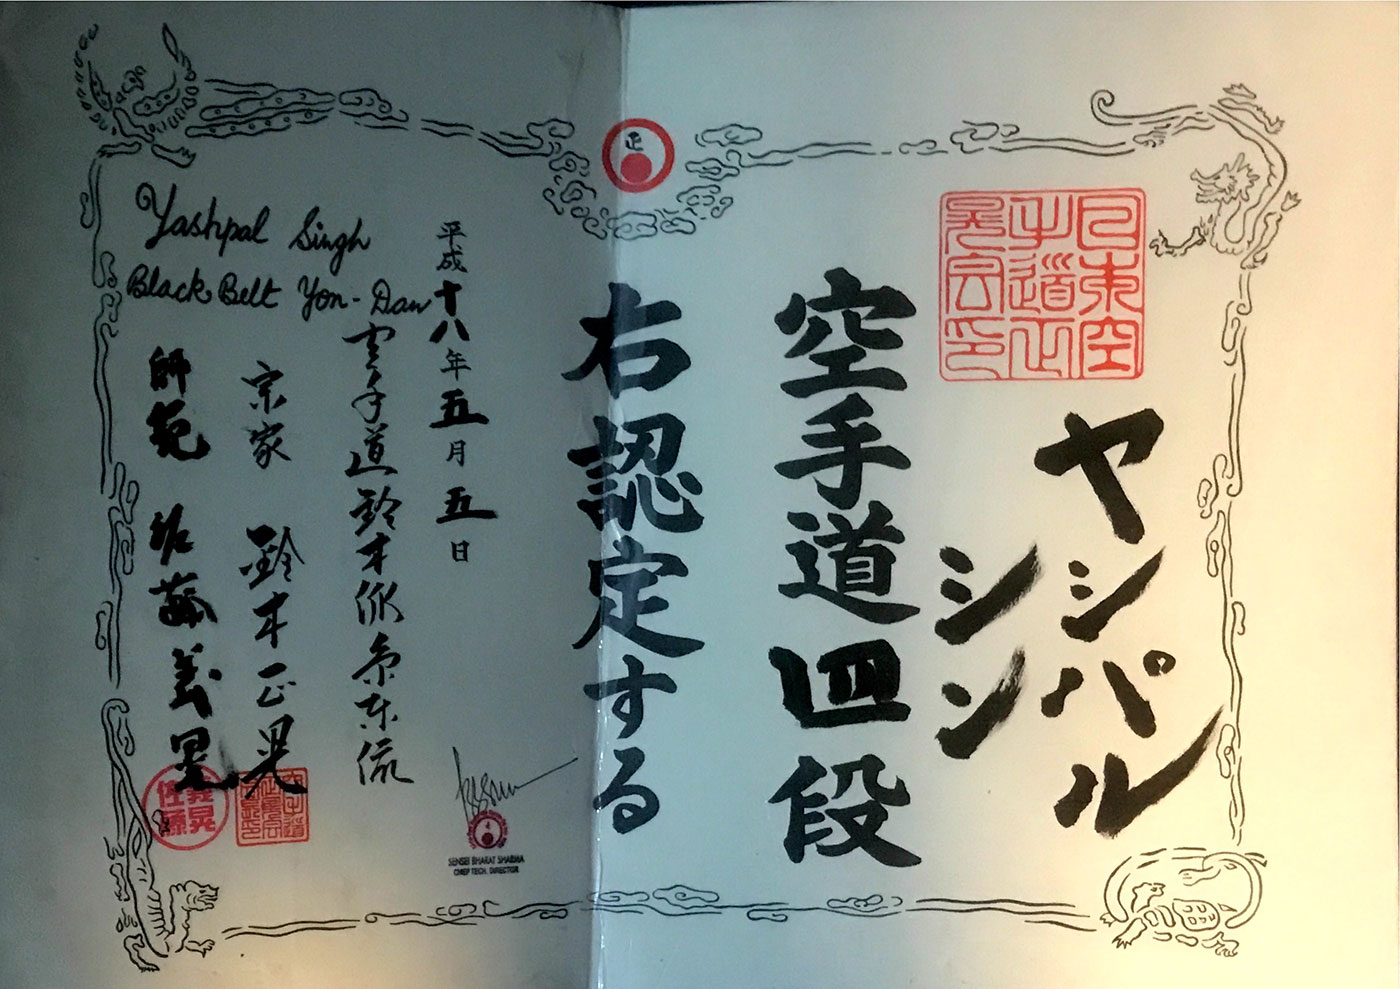 日本空
手道正
晃会印
ヤシパル
シン
空手道四段
右認定する
正
平成十八年五月五日
空手道鈴木派糸東流
宗家 鈴木正晃
師範 佐藤義晃
Yashpal Singh
Black Belt Yon-Dan
義晃
佐藤
SENSEI BHARAT SHARMA
CHIEF TECH. DIRECTOR